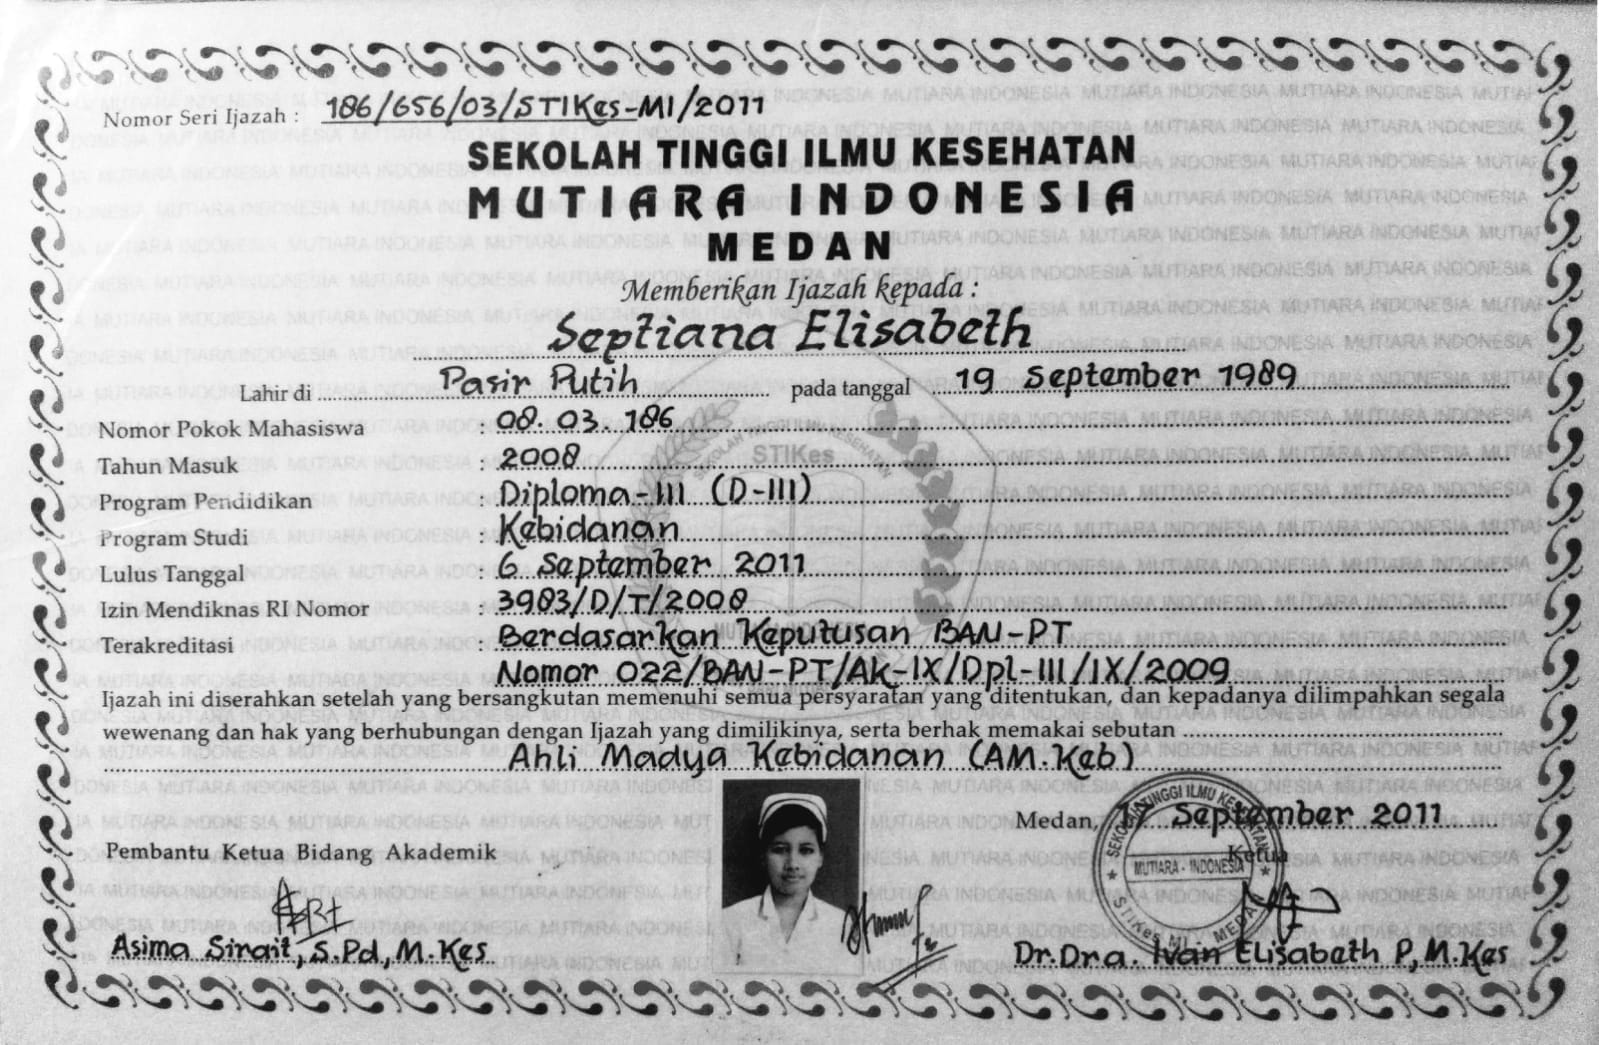 Nomor Seri Ijazah : 186/656/03/STIKes-MI/2011
SEKOLAH TINGGI ILMU KESEHATAN
MUTIARA INDONESIA
MEDAN
Memberikan Ijazah kepada :
Septiana Elisabeth
Lahir di Pasir Putih pada tanggal 19 September 1989
Nomor Pokok Mahasiswa : 08.03.186
Tahun Masuk : 2008
Program Pendidikan : Diploma-III (D-III)
Program Studi : Kebidanan
Lulus Tanggal : 6 September 2011
Izin Mendiknas RI Nomor : 3983/D/T/2008
Terakreditasi : Berdasarkan Keputusan BAN-PT
Nomor 022/BAN-PT/Ak-IX/Dpl-III/IX/2009
Ijazah ini diserahkan setelah yang bersangkutan memenuhi semua persyaratan yang ditentukan, dan kepadanya dilimpahkan segala
wewenang dan hak yang berhubungan dengan Ijazah yang dimilikinya, serta berhak memakai sebutan
Ahli Madya Kebidanan (AM.Keb)
Medan, September 2011
Pembantu Ketua Bidang Akademik
Ketua
Asima Sirait, S.Pd, M.Kes
Dr.Dra. Ivan Elisabeth P, M.Kes
SEKOLAH TINGGI ILMU KESEHATAN
MUTIARA - INDONESIA
STIKes MI - MEDAN
SEKOLAH TINGGI ILMU KESEHATAN
STIKes
MUTIARA INDONESIA